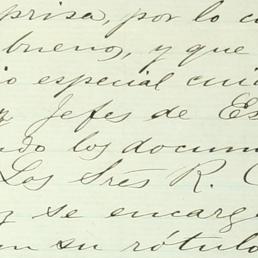 prisa, por lo c
bueno, y que
io especial cui
y Jefes de Es
ndo los docum
Los Srés R. C
y se encarg
en su rótulo